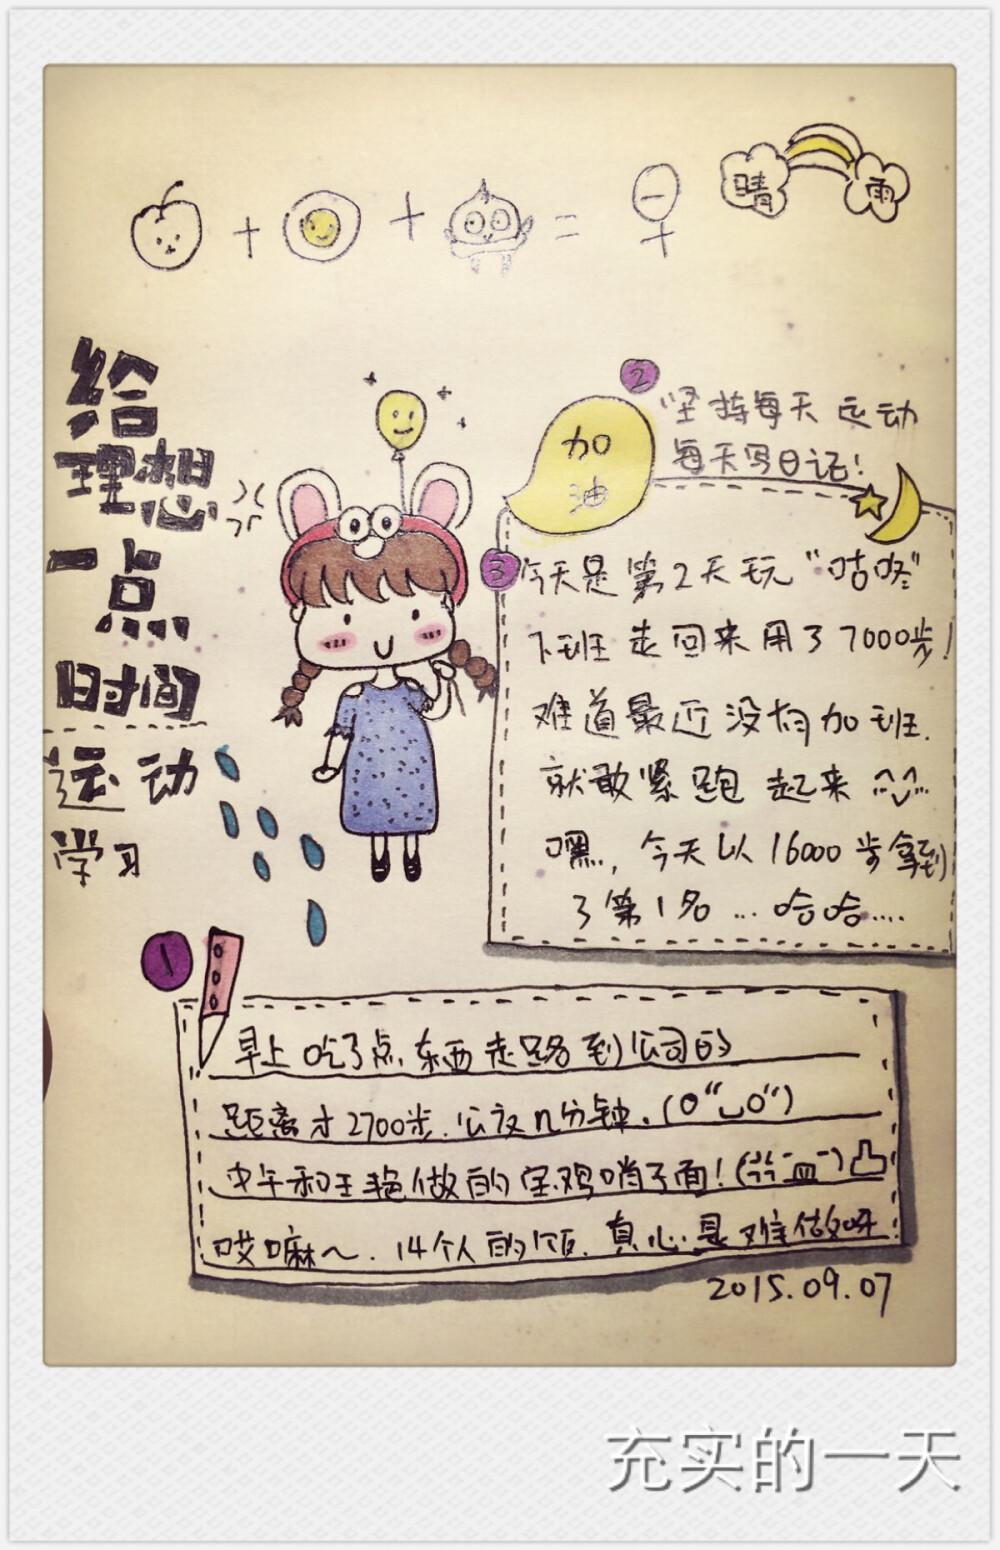 晴
雨
给
理想
一点
时间
运动
学习
2
加
油
坚持每天运动
每天写日记!
3
今天是第2天玩“咕咚”
下班走回来用了7000步!
难道最近没有加班.
就敢紧跑起来
嘿,今天以16000步拿到
了第1名...哈哈....
1
早上吃了点东西走路到公司的
距离才2700步.公交几分钟.(0“‿0“)
中午和王艳做的宝鸡哨子面!
哎嘛~.14个人的饭.真心是难做呀.
2015.09.07
充实的一天